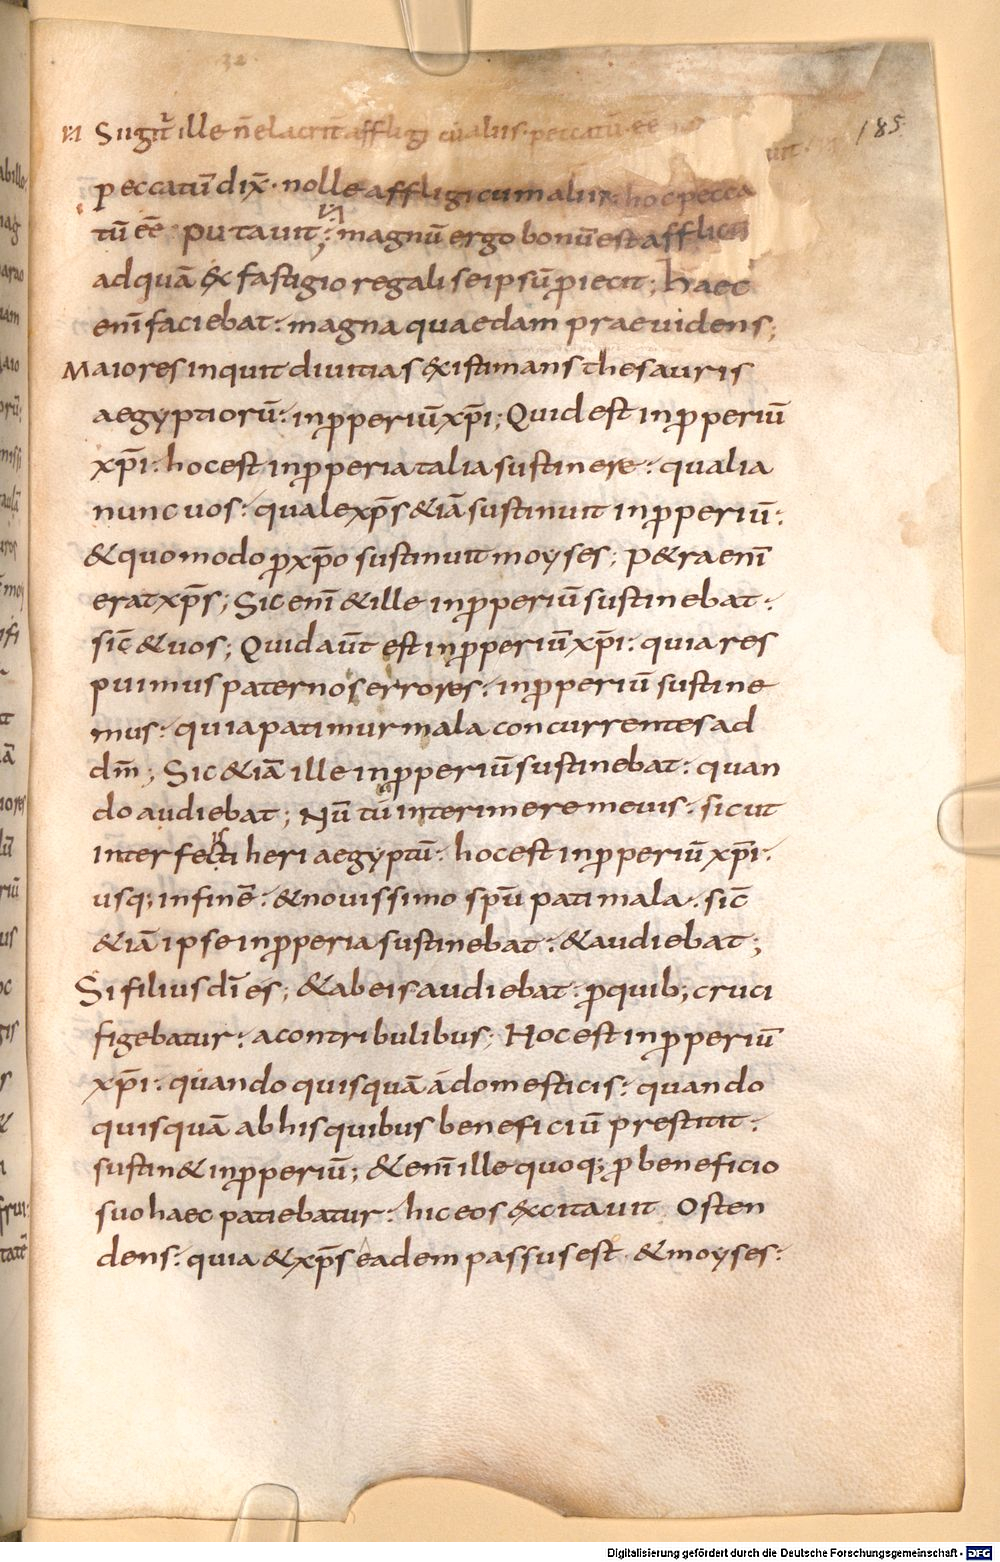 Si igit̄ ille n̄ elacrit̄ affligi cū aliis peccatū ēē
185
peccatū dix̄ · nolle affligi cum aliis · hoc pecca
tū ēē putavit ; magnū ergo bonū est afflicti
ad quā & fastigio regali se ipsū ꝓiecit ; haec
eni̅ faciebat : magna quaedam praevidens ;
Maiores inquit divitias existimans thesauris
aegyptiorū : inꝓperiū xp̄i ; Quid est inꝓperiū
xp̄i : hoc est inꝓperia talia sustinere : qualia
nunc vos : quale xp̄s &iā sustinuit inꝓperiū :
& quomodo ꝓ xp̄o sustinuit moyses ; P&ra eni̅
erat xp̄s ; Sic eni̅ & ille inꝓperiū sustinebat :
sic̄ & vos ; Quid aūt est inꝓperiū xp̄i : quia res
puimus paternos errores : inꝓperiū sustine
mus : quia patimur mala concurrentes ad
dm̄ ; Sic &iā ille inꝓperiū sustinebat : quan
do audiebat ; Nū tū interimere me vis : sicut
interfecisti heri aegyptū : hoc est inꝓperiū xp̄i :
usq; in finē : & novissimo spū pati mala : sic̄
&iā ipse inꝓperia sustinebat : & audiebat ;
Si filius dī es ; & ab eis audiebat : ꝓ quib; cruci
figebatur : a contribulibus ; Hoc est inꝓperiū
xp̄i : quando quisquā a domesticis : quando
quisquā ab his quibus beneficiū prestitit :
sustin& inꝓperiū ; &eni̅ ille quoq; ꝓ beneficio
suo haec patiebatur : hic eos excitavit Osten
dens : quia & xp̄s eadem passus est · & moyses :
Digitalisierung gefördert durch die Deutsche Forschungsgemeinschaft - DFG